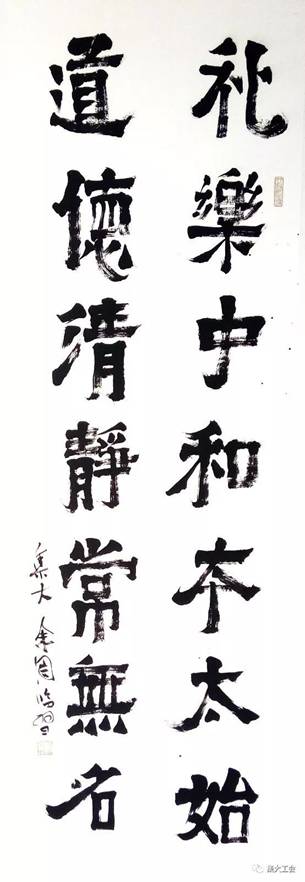 礼樂中和本太始
道德清靜常無名
集大
集大工会